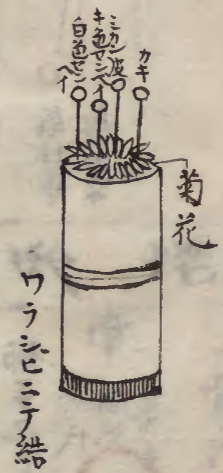 カキ
ミカン皮
キ色センベイ
白色センベイ
菊花
ワラジビニテ結